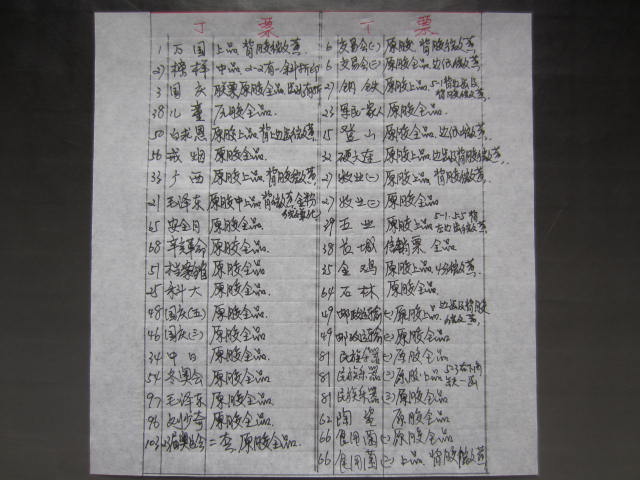 J 票
1 万国 上品 背胶微黄
榜样 中品 2-2有一斜折印
3 国庆 胶票原胶全品
38 儿童 原胶全品
50 白求恩 原胶上品
56 戒烟 原胶全品
33 广西 原胶上品 背胶微黄
21 毛泽东 原胶中上品 背微黄 金粉
65 安全月 原胶全品
68 辛亥革命 原胶全品
57 原胶全品
25 科大 原胶全品
48 国庆(五) 原胶全品
46 国庆(三) 原胶全品
34 中日 原胶全品
54 冬奥会 原胶全品
97 毛泽东 原胶全品
96 刘少奇 原胶全品
103 二套 原胶全品
T 票
6 交易会(二) 原胶 背胶微黄
6 交易会(二) 原胶全品 边纸微黄
27 钢铁 原胶上品 5-1背边及 背胶微黄
23 原胶全品
15 登山 原胶上品 边纸微黄
32 原胶上品 边及背胶微黄
27 牧业(一) 原胶上品 背胶微黄
27 牧业(二) 原胶全品
39 五业 原胶上品 5-1 上5背 左边纸微黄
38 长城 信销票 全品
35 金鸡 原胶上品 4分微黄
64 石林 原胶全品
49 邮政运输(一) 原胶上品 边纸及背胶 微黄
49 邮政运输(二) 原胶全品
81 民族乐器(一) 原胶全品
81 民族乐器(二) 原胶上品 5-3右下角 缺一齿
81 民族乐器(三) 原胶全品
62 陶瓷 原胶全品
66 食用菌(一) 原胶全品
66 食用菌(二) 上品 背胶微黄